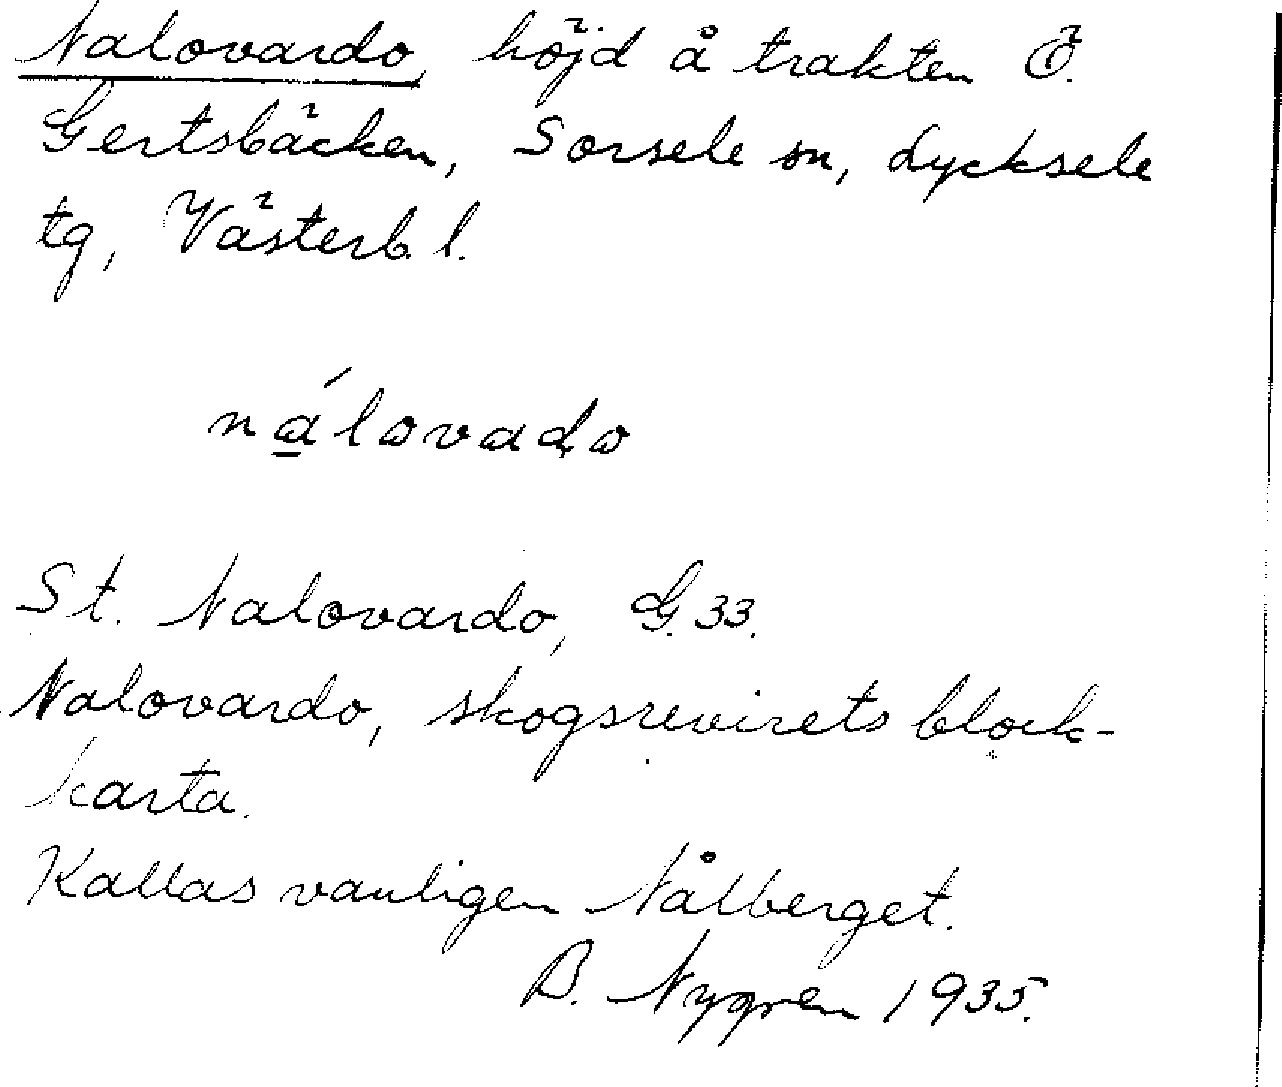 Nalovardo, höjd å trakten Ö.
Gertsbäcken, Sorsele sn, Lycksele
tg, Västerb. l.
nálovado
St. Nalovardo, G. 33.
Nalovardo, skogsrevirets block-
karta.
Kallas vanligen Nålberget.
B. Nygren 1935.